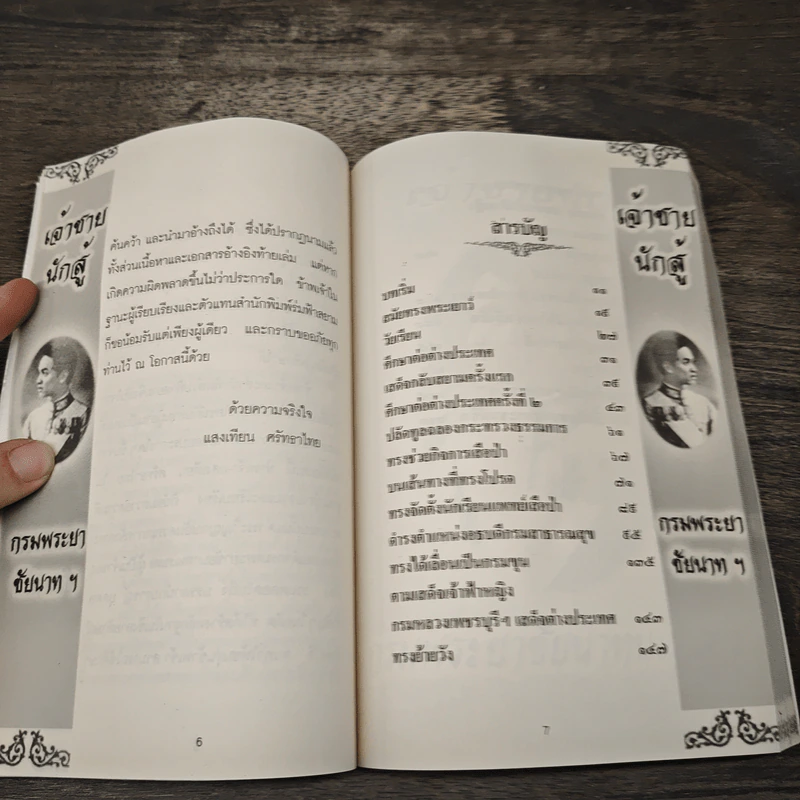 เจ้าชาย
นักสู้
กรมพระยา
ชัยนาท ฯ
ค้นคว้า และนำมาอ้างถึงได้ ซึ่งได้ปรากฏนามแล้ว
ทั้งส่วนเนื้อหาและเอกสารอ้างอิงท้ายเล่ม แต่หาก
เกิดความผิดพลาดขึ้นไม่ว่าประการใด ข้าพเจ้าใน
ฐานะผู้เรียบเรียงและตัวแทนสำนักพิมพ์ร่มฟ้าสยาม
ก็ขอน้อมรับแต่เพียงผู้เดียว และกราบขออภัยทุก
ท่านไว้ ณ โอกาสนี้ด้วย
ด้วยความจริงใจ
แสงเทียน ศรัทธาไทย
6
สารบัญ
บทเริ่ม ๑๑
สมัยทรงพระเยาว์ ๑๕
วัยเรียน ๒๗
ศึกษาต่อต่างประเทศ ๓๑
เสด็จกลับสยามครั้งแรก ๓๕
ศึกษาต่อต่างประเทศครั้งที่ ๒ ๔๓
ปลัดทูลฉลองกระทรวงธรรมการ ๖๑
ทรงช่วยกิจการเสือป่า ๖๗
บนเส้นทางที่ทรงโปรด ๗๑
ทรงจัดตั้งนักเรียนแพทย์เสือป่า ๘๕
ดำรงตำแหน่งอธิบดีกรมสาธารณสุข ๙๕
ทรงได้เลื่อนเป็นกรมขุน ๑๓๕
ตามเสด็จเจ้าฟ้าหญิง
กรมหลวงเพชรบุรีฯ เสด็จต่างประเทศ ๑๔๓
ทรงย้ายวัง ๑๔๗
7
เจ้าชาย
นักสู้
กรมพระยา
ชัยนาท ฯ